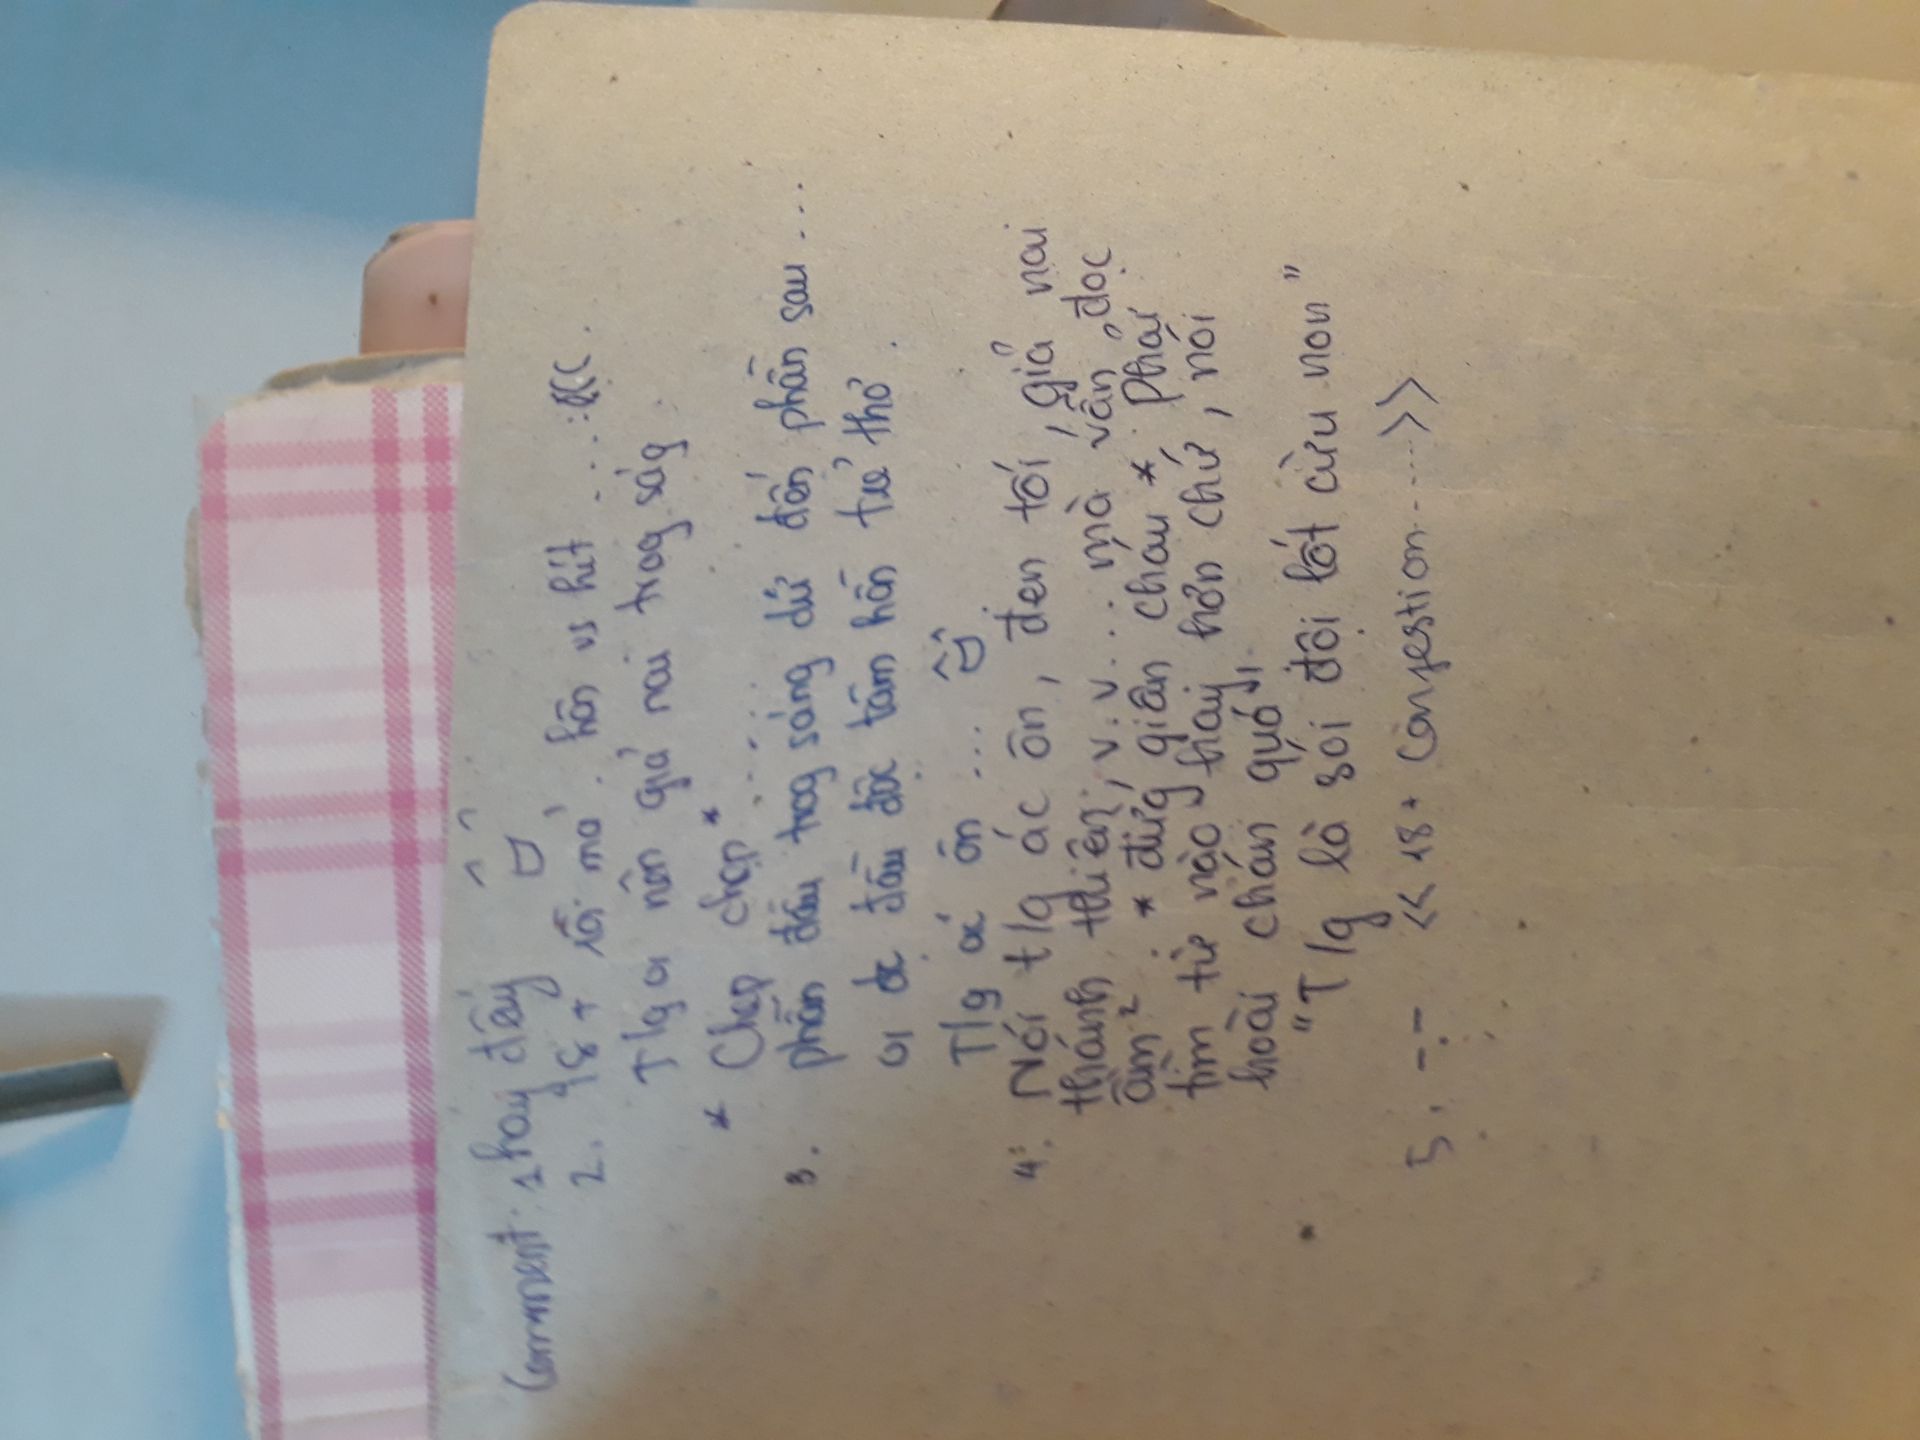 Comment: 1 hay đấy ^ ^
2. 18+ rồi má, hôn vs hít ...:(((.
T/g ơi nên giả nai trog ság.
* Chẹp chẹp * ....
3. phần đầu trog sáng dứ đến phần sau ...
ơi đc đầu độc tâm hồn trẻ thơ.
T/g ác ôn ... ^^
4. Nói t/g ác ôn, đen tối, giả nai
thánh thiện, v.v... mà vẫn đọc
ầm² * đừng giận cháu * Phải
tìm từ nào hay hơn chứ, nói
hoài chán quá,
"T/g là sói đội lốt cừu non"
5. -.- << 18+ Confestion...... >>